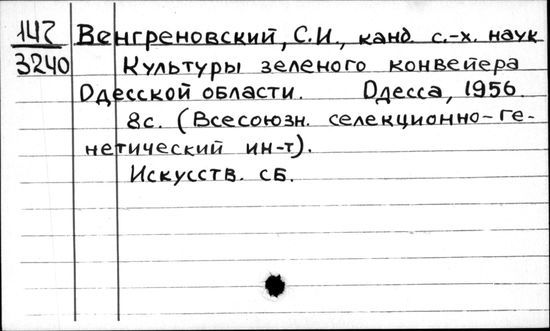 147 Венгреновский, С.И., канд. с.-х. наук
3240 Культуры зеленого конвейера
Одесской области. Одесса, 1956.
8с. (Всесоюзн. селекционно-ге-
нетический ин-т).
Искусств. сб.